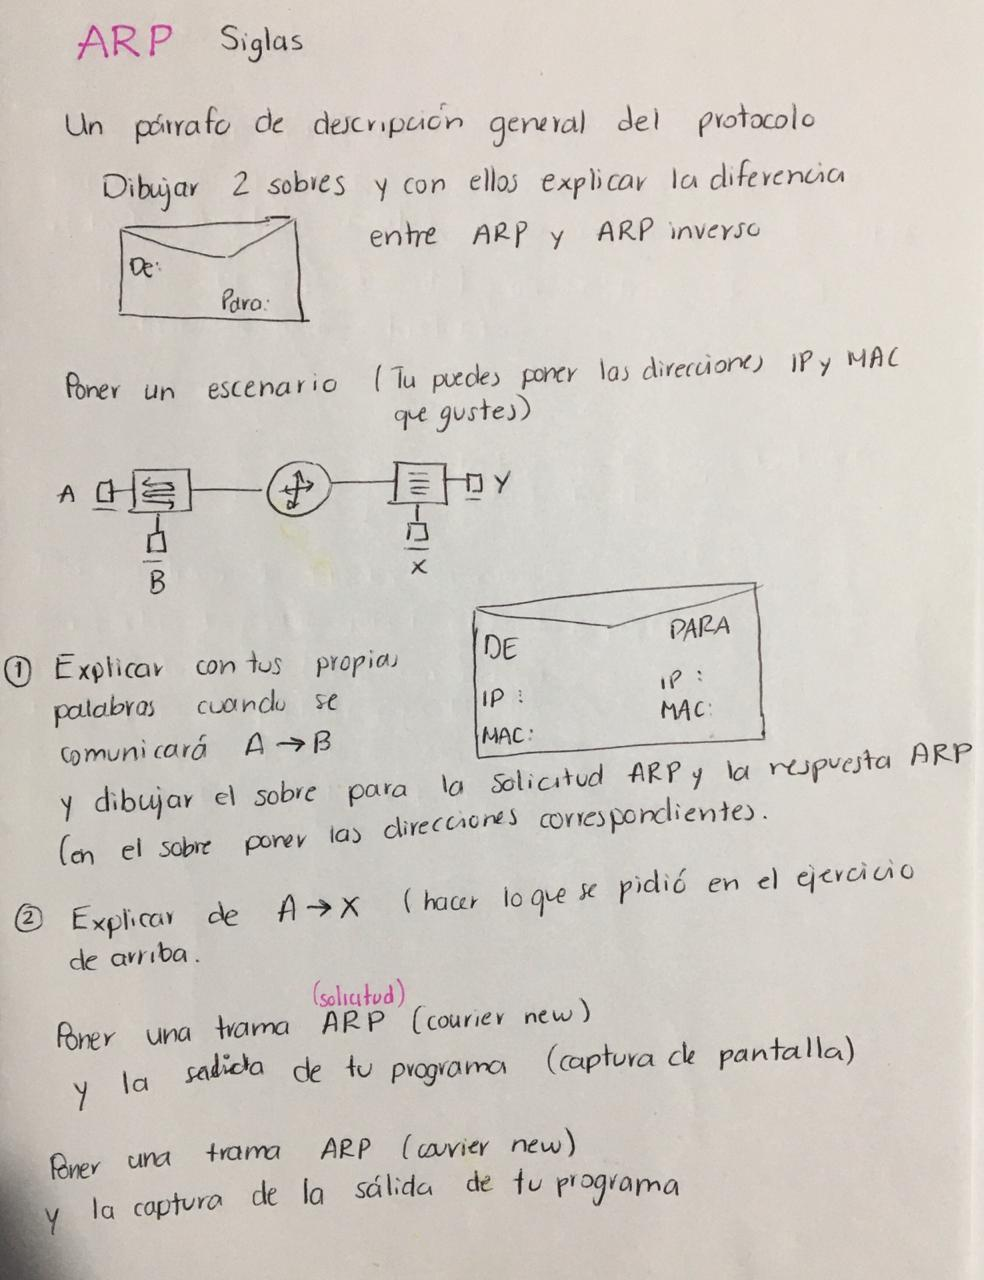 ARP Siglas
Un párrafo de descripción general del protocolo
Dibujar 2 sobres y con ellos explicar la diferencia
entre ARP y ARP inverso
De:
Para:
Poner un escenario (Tu puedes poner las direcciones IP y MAC
que gustes)
A
Y
B
X
DE PARA
IP: IP:
MAC: MAC:
① Explicar con tus propias
palabras cuando se
comunicará A → B
y dibujar el sobre para la solicitud ARP y la respuesta ARP
(en el sobre poner las direcciones correspondientes.
② Explicar de A → X (hacer lo que se pidió en el ejercicio
de arriba.
(solicitud)
Poner una trama ARP (courier new)
y la de tu programa (captura de pantalla)
Poner una trama ARP (courier new)
y la captura de la sálida de tu programa